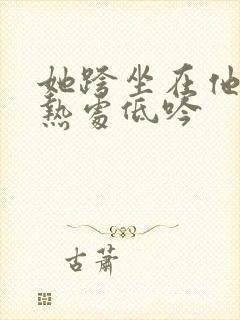 她跨坐在他
熱處低吟
古蕭